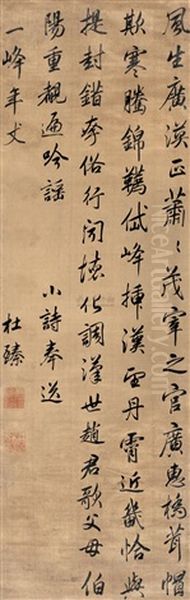 風生廣漢正蕭蕭茂宰之官廣惠橋茸帽
欺寒騰錦韉岱峰插漢雲丹霄近畿恰與
提封錯奔俗行聞壞化調漢世趙君歌父母伯
陽重觀遍吟謠 小詩奉送
一峰年丈 杜臻